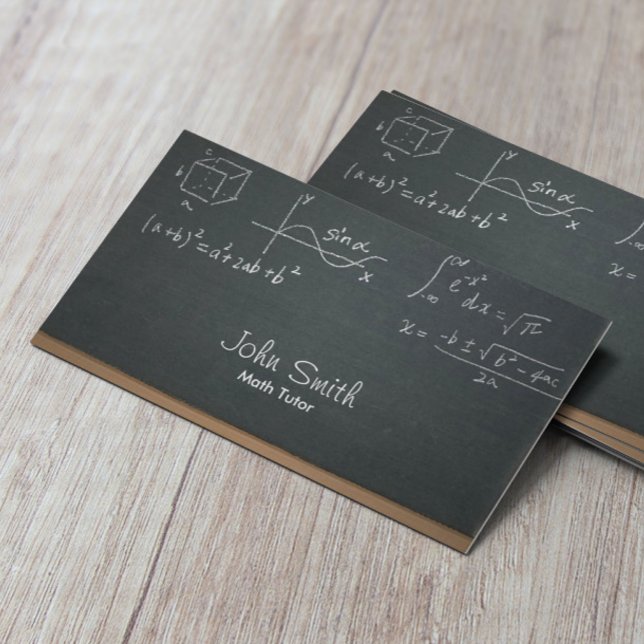 c
b
a
(a+b)² = a² + 2ab + b²
y
sin α
x
∫_{-∞}^{∞} e^{-x²} dx = √π
x = (-b ± √(b² - 4ac)) / 2a
John Smith
Math Tutor
c
b
a
(a+b)² = a² + 2ab + b²
y
sin α
x
∫
x =